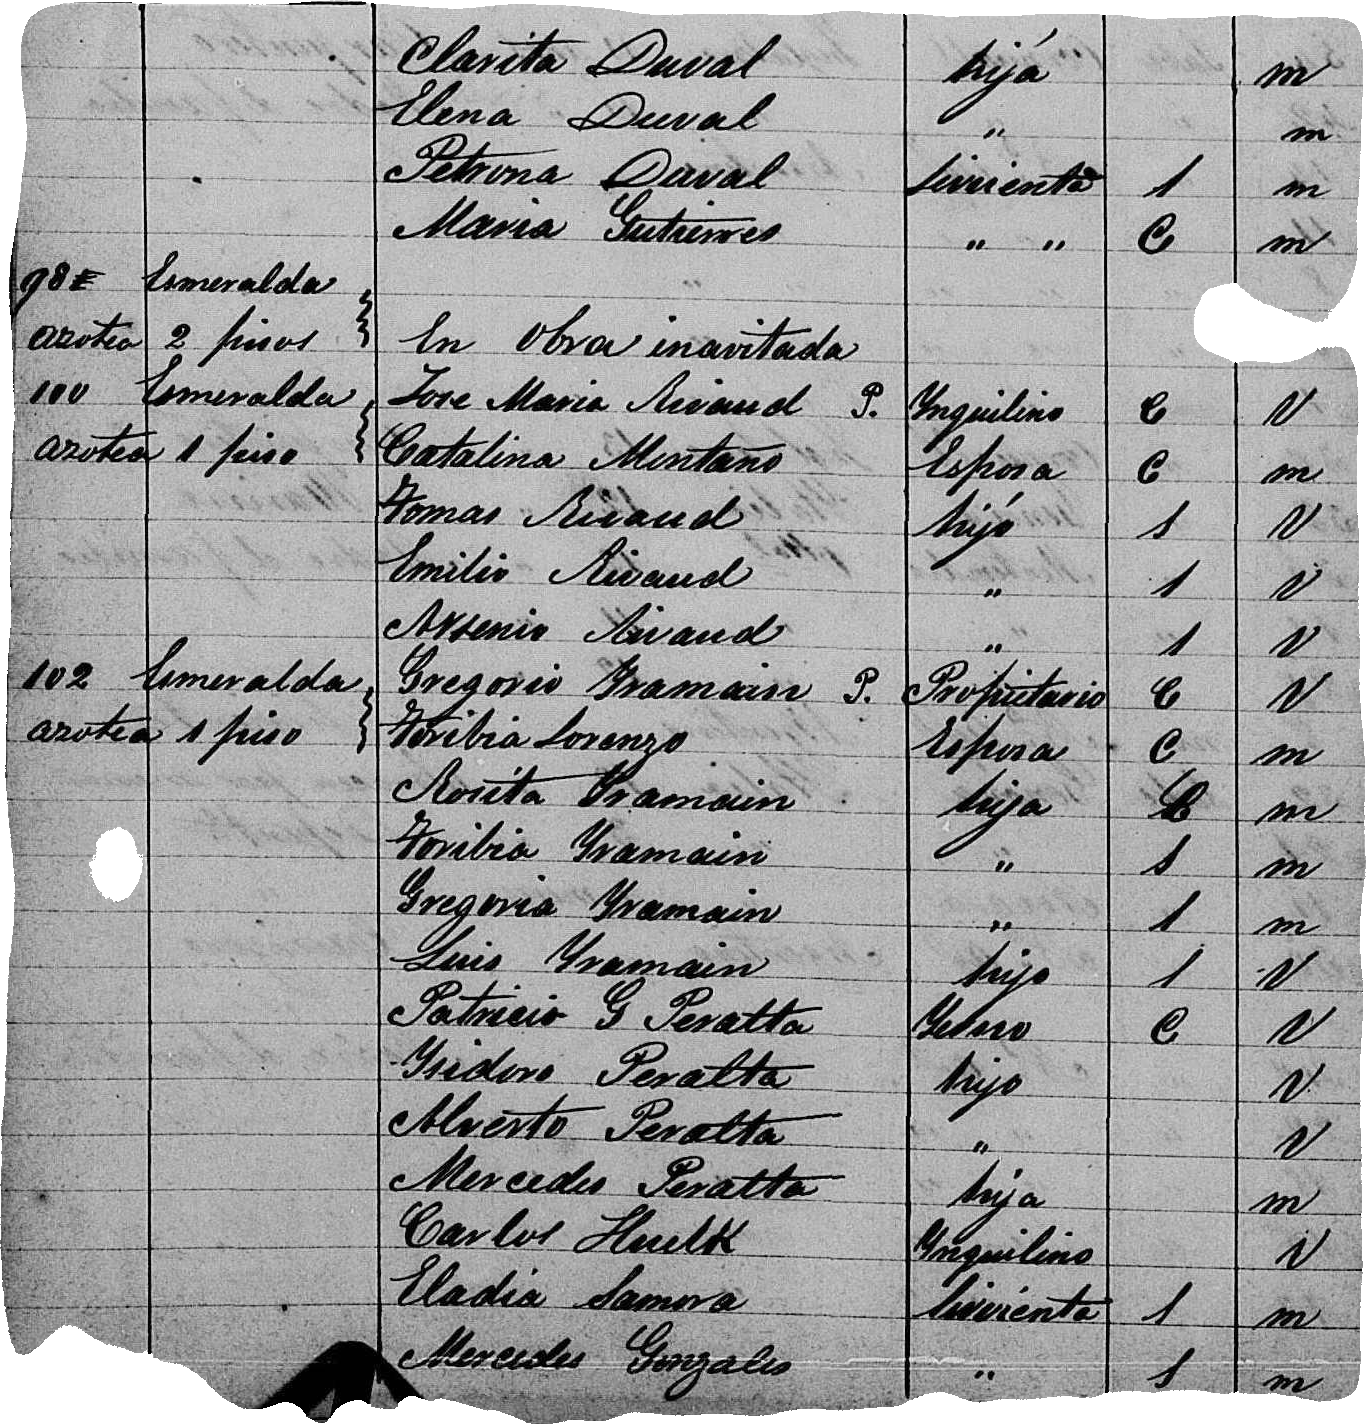 Clarita Duval hija m
Elena Duval " m
Petrona Duval Sirvienta S m
Maria Gutierres " " C m
98 Esmeralda
azotea 2 pisos En Obra inavitada
100 Esmeralda Jose Maria Rivaud P. Ynquilino C V
azotea 1 piso Catalina Montaño Esposa C m
Tomas Rivaud hijo S V
Emilio Rivaud " S V
Arsenio Rivaud " S V
102 Esmeralda Gregorio Yramain P. Propietario C V
azotea 1 piso Toribia Lorenzo Esposa C m
Rosita Yramain hija C m
Toribia Yramain " S m
Gregoria Yramain " S m
Luis Yramain hijo S V
Patricio G Peralta Yerno C V
Ysidoro Peralta hijo V
Alverto Peralta " V
Mercedes Peralta hija m
Carlos Ynquilino V
Eladia Samora Sirvienta S m
Mercedes Gonzales " S m